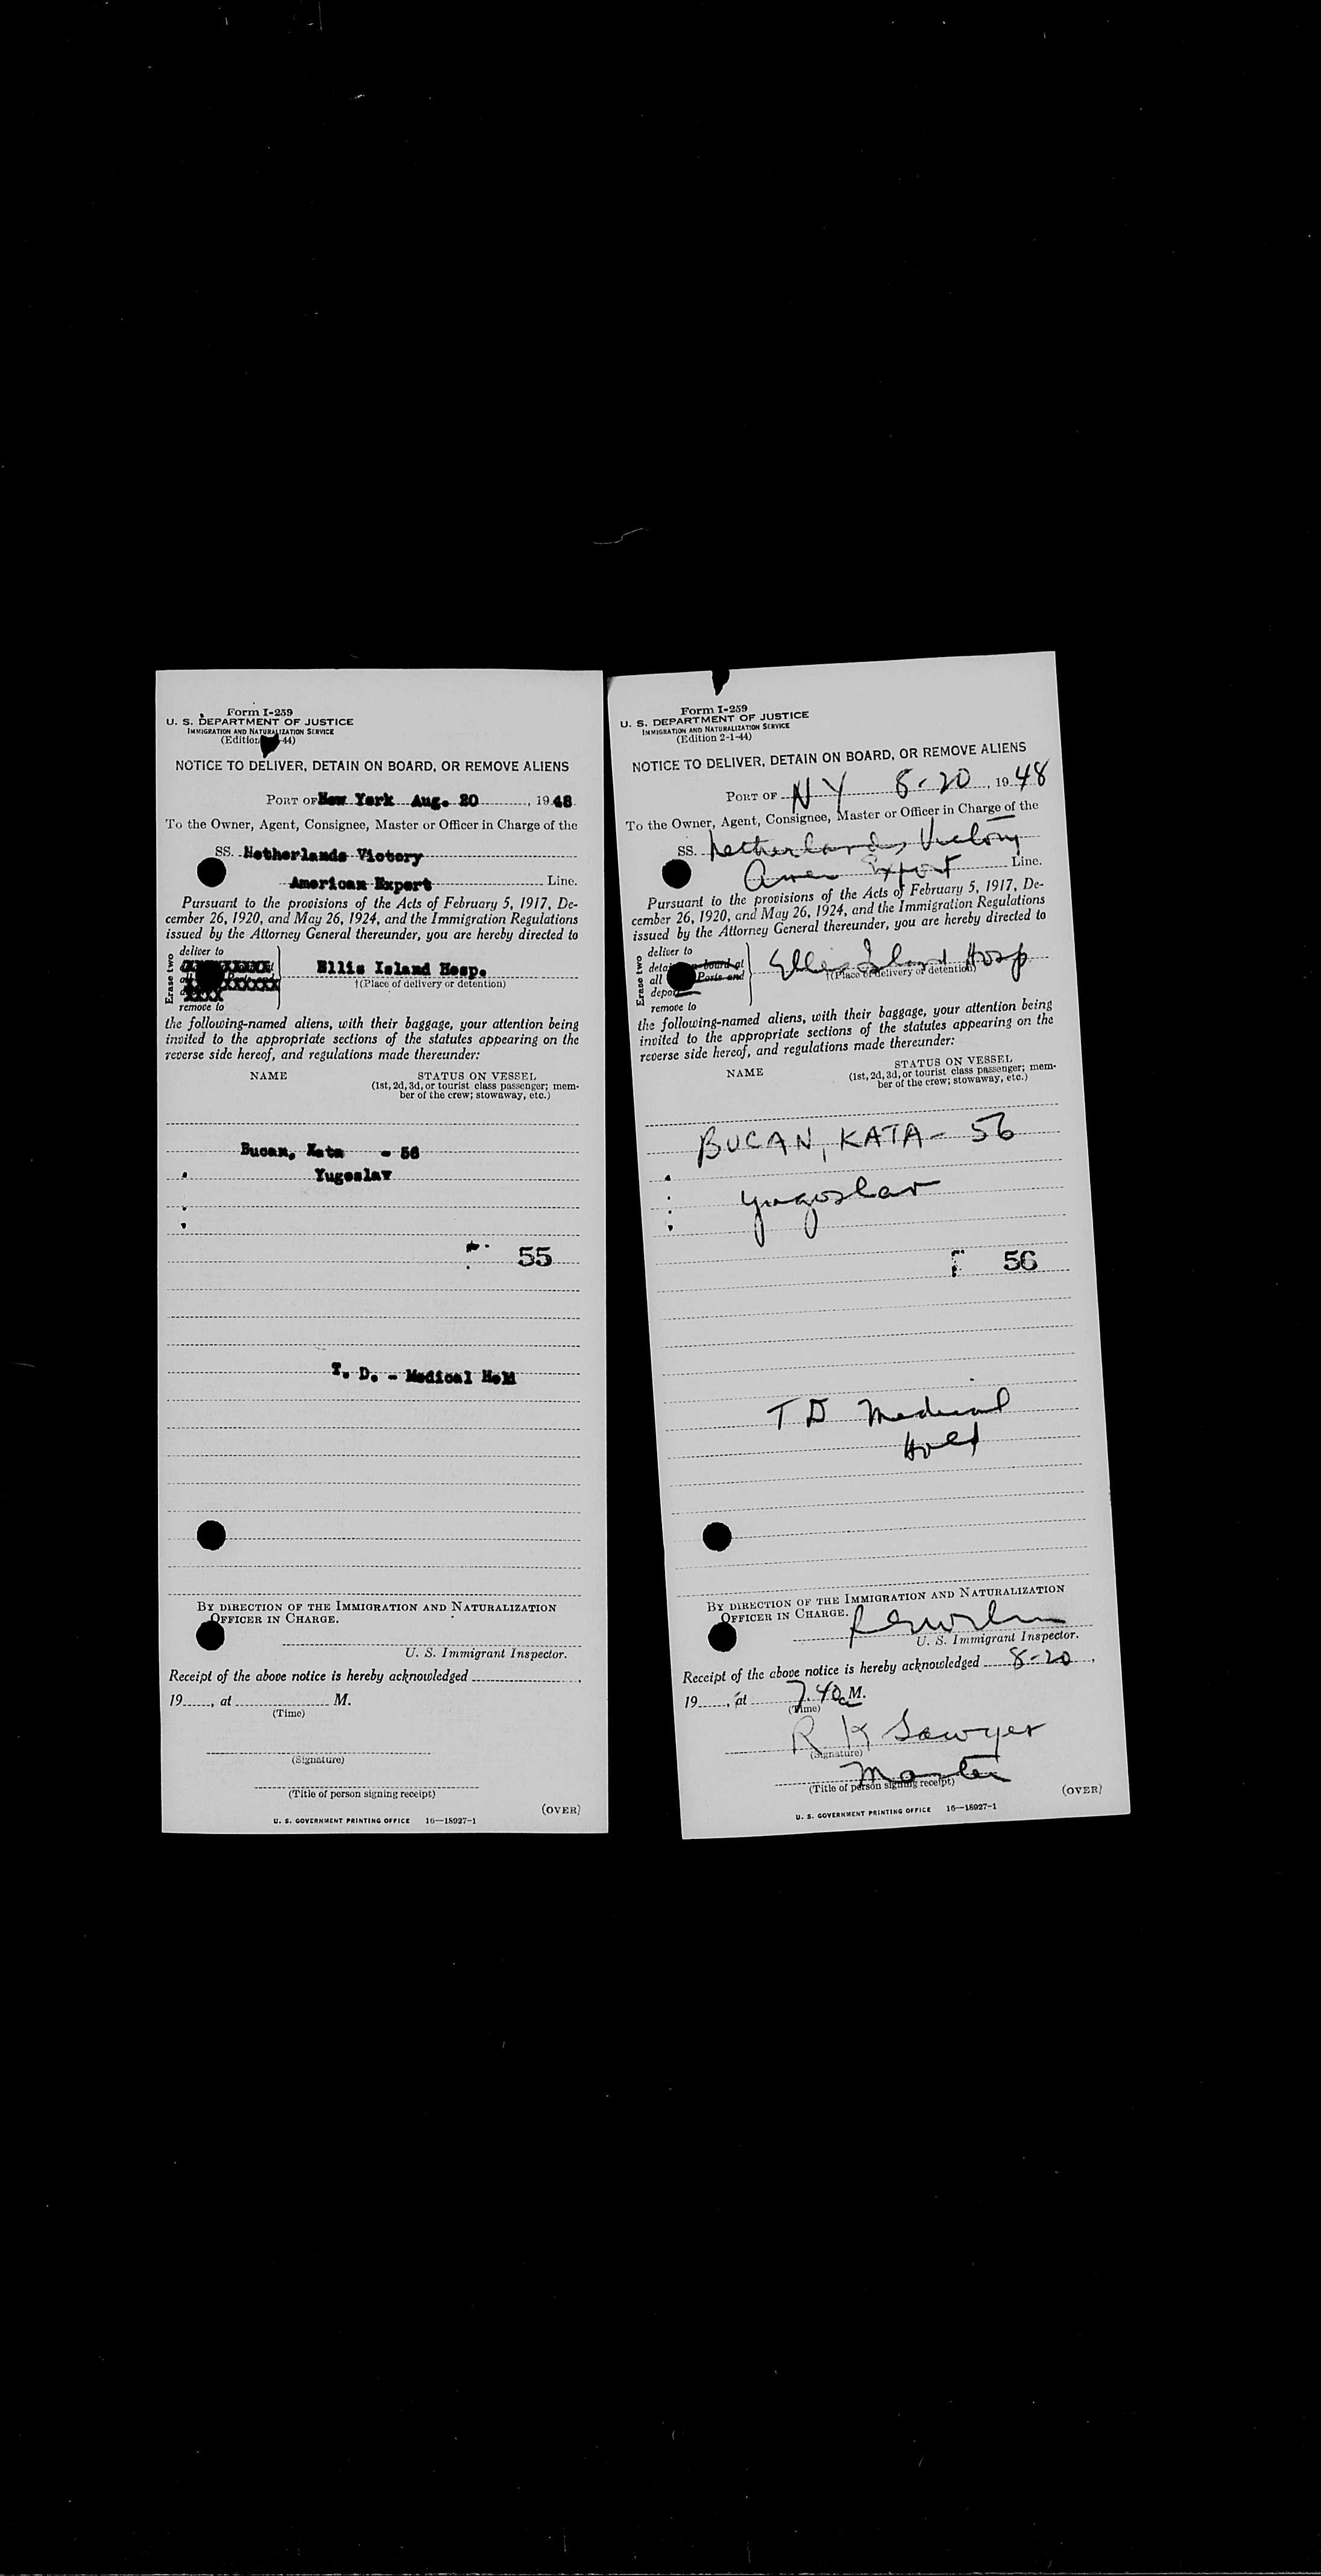 Form I-259
U. S. DEPARTMENT OF JUSTICE
IMMIGRATION AND NATURALIZATION SERVICE
(Edition -44)
NOTICE TO DELIVER, DETAIN ON BOARD, OR REMOVE ALIENS
PORT OF New York Aug. 20, 1948
To the Owner, Agent, Consignee, Master or Officer in Charge of the
SS. Netherlands Victory
American Export Line.
Pursuant to the provisions of the Acts of February 5, 1917, De-
cember 26, 1920, and May 26, 1924, and the Immigration Regulations
issued by the Attorney General thereunder, you are hereby directed to
Erase two
deliver to
Ellis Island Hosp.
†(Place of delivery or detention)
remove to
the following-named aliens, with their baggage, your attention being
invited to the appropriate sections of the statutes appearing on the
reverse side hereof, and regulations made thereunder:
NAME STATUS ON VESSEL
(1st, 2d, 3d, or tourist class passenger; mem-
ber of the crew; stowaway, etc.)
Bucan, Kata - 56
Yugoslav
55
T. D. - Medical Held
BY DIRECTION OF THE IMMIGRATION AND NATURALIZATION
OFFICER IN CHARGE.
U. S. Immigrant Inspector.
Receipt of the above notice is hereby acknowledged
19, at M.
(Time)
(Signature)
(Title of person signing receipt)
(OVER)
U. S. GOVERNMENT PRINTING OFFICE 16—18927-1
Form I-259
U. S. DEPARTMENT OF JUSTICE
IMMIGRATION AND NATURALIZATION SERVICE
(Edition 2-1-44)
NOTICE TO DELIVER, DETAIN ON BOARD, OR REMOVE ALIENS
PORT OF N Y 8-20, 1948
To the Owner, Agent, Consignee, Master or Officer in Charge of the
SS. Netherlands Victory
Amer Export Line.
Pursuant to the provisions of the Acts of February 5, 1917, De-
cember 26, 1920, and May 26, 1924, and the Immigration Regulations
issued by the Attorney General thereunder, you are hereby directed to
Erase two
deliver to
board at
all Ports and
Ellis Island Hosp
†(Place of delivery or detention)
remove to
the following-named aliens, with their baggage, your attention being
invited to the appropriate sections of the statutes appearing on the
reverse side hereof, and regulations made thereunder:
NAME STATUS ON VESSEL
(1st, 2d, 3d, or tourist class passenger; mem-
ber of the crew; stowaway, etc.)
BUCAN, KATA - 56
Yugoslav
56
T D Medical
Held
BY DIRECTION OF THE IMMIGRATION AND NATURALIZATION
OFFICER IN CHARGE.
U. S. Immigrant Inspector.
Receipt of the above notice is hereby acknowledged 8-20,
19, at 7.40 a M.
(Time)
R K Sawyer
(Signature)
Master
(Title of person signing receipt)
(OVER)
U. S. GOVERNMENT PRINTING OFFICE 16—18927-1